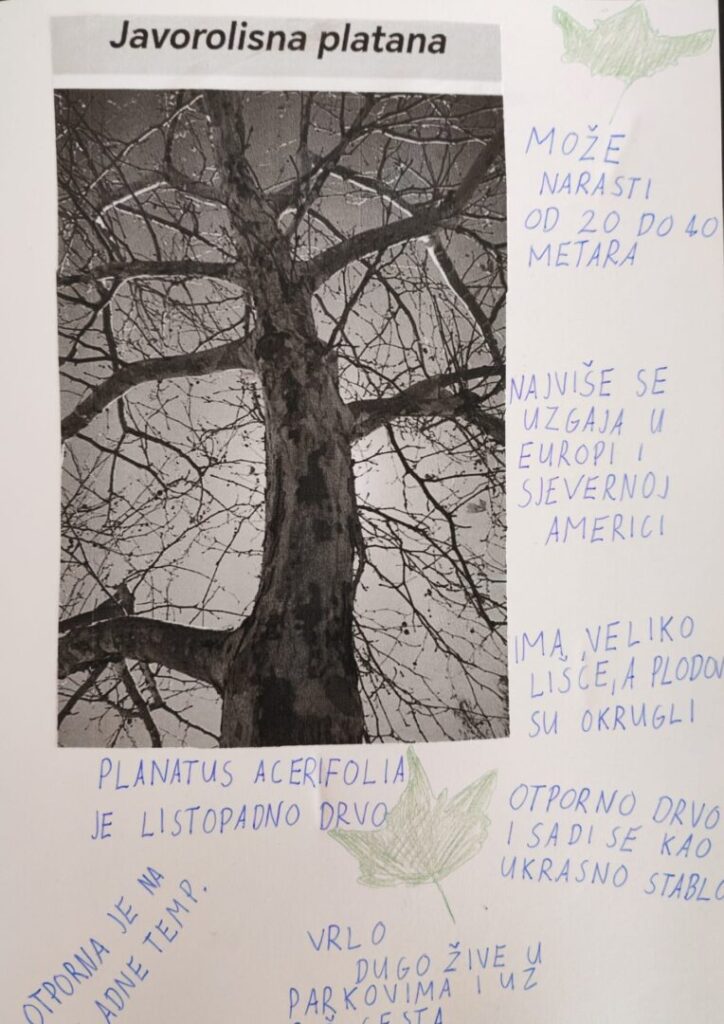 Javorolisna platana
MOŽE
NARASTI
OD 20 DO 40
METARA
NAJVIŠE SE
UZGAJA U
EUROPI I
SJEVERNOJ
AMERICI
IMA VELIKO
LIŠĆE, A PLODOV
SU OKRUGLI
PLANATUS ACERIFOLIA
JE LISTOPADNO DRVO
OTPORNO DRVO
I SADI SE KAO
UKRASNO STABLO
OTPORNA JE NA
ADNE TEMP.
VRLO
DUGO ŽIVE U
PARKOVIMA I UZ
CESTA